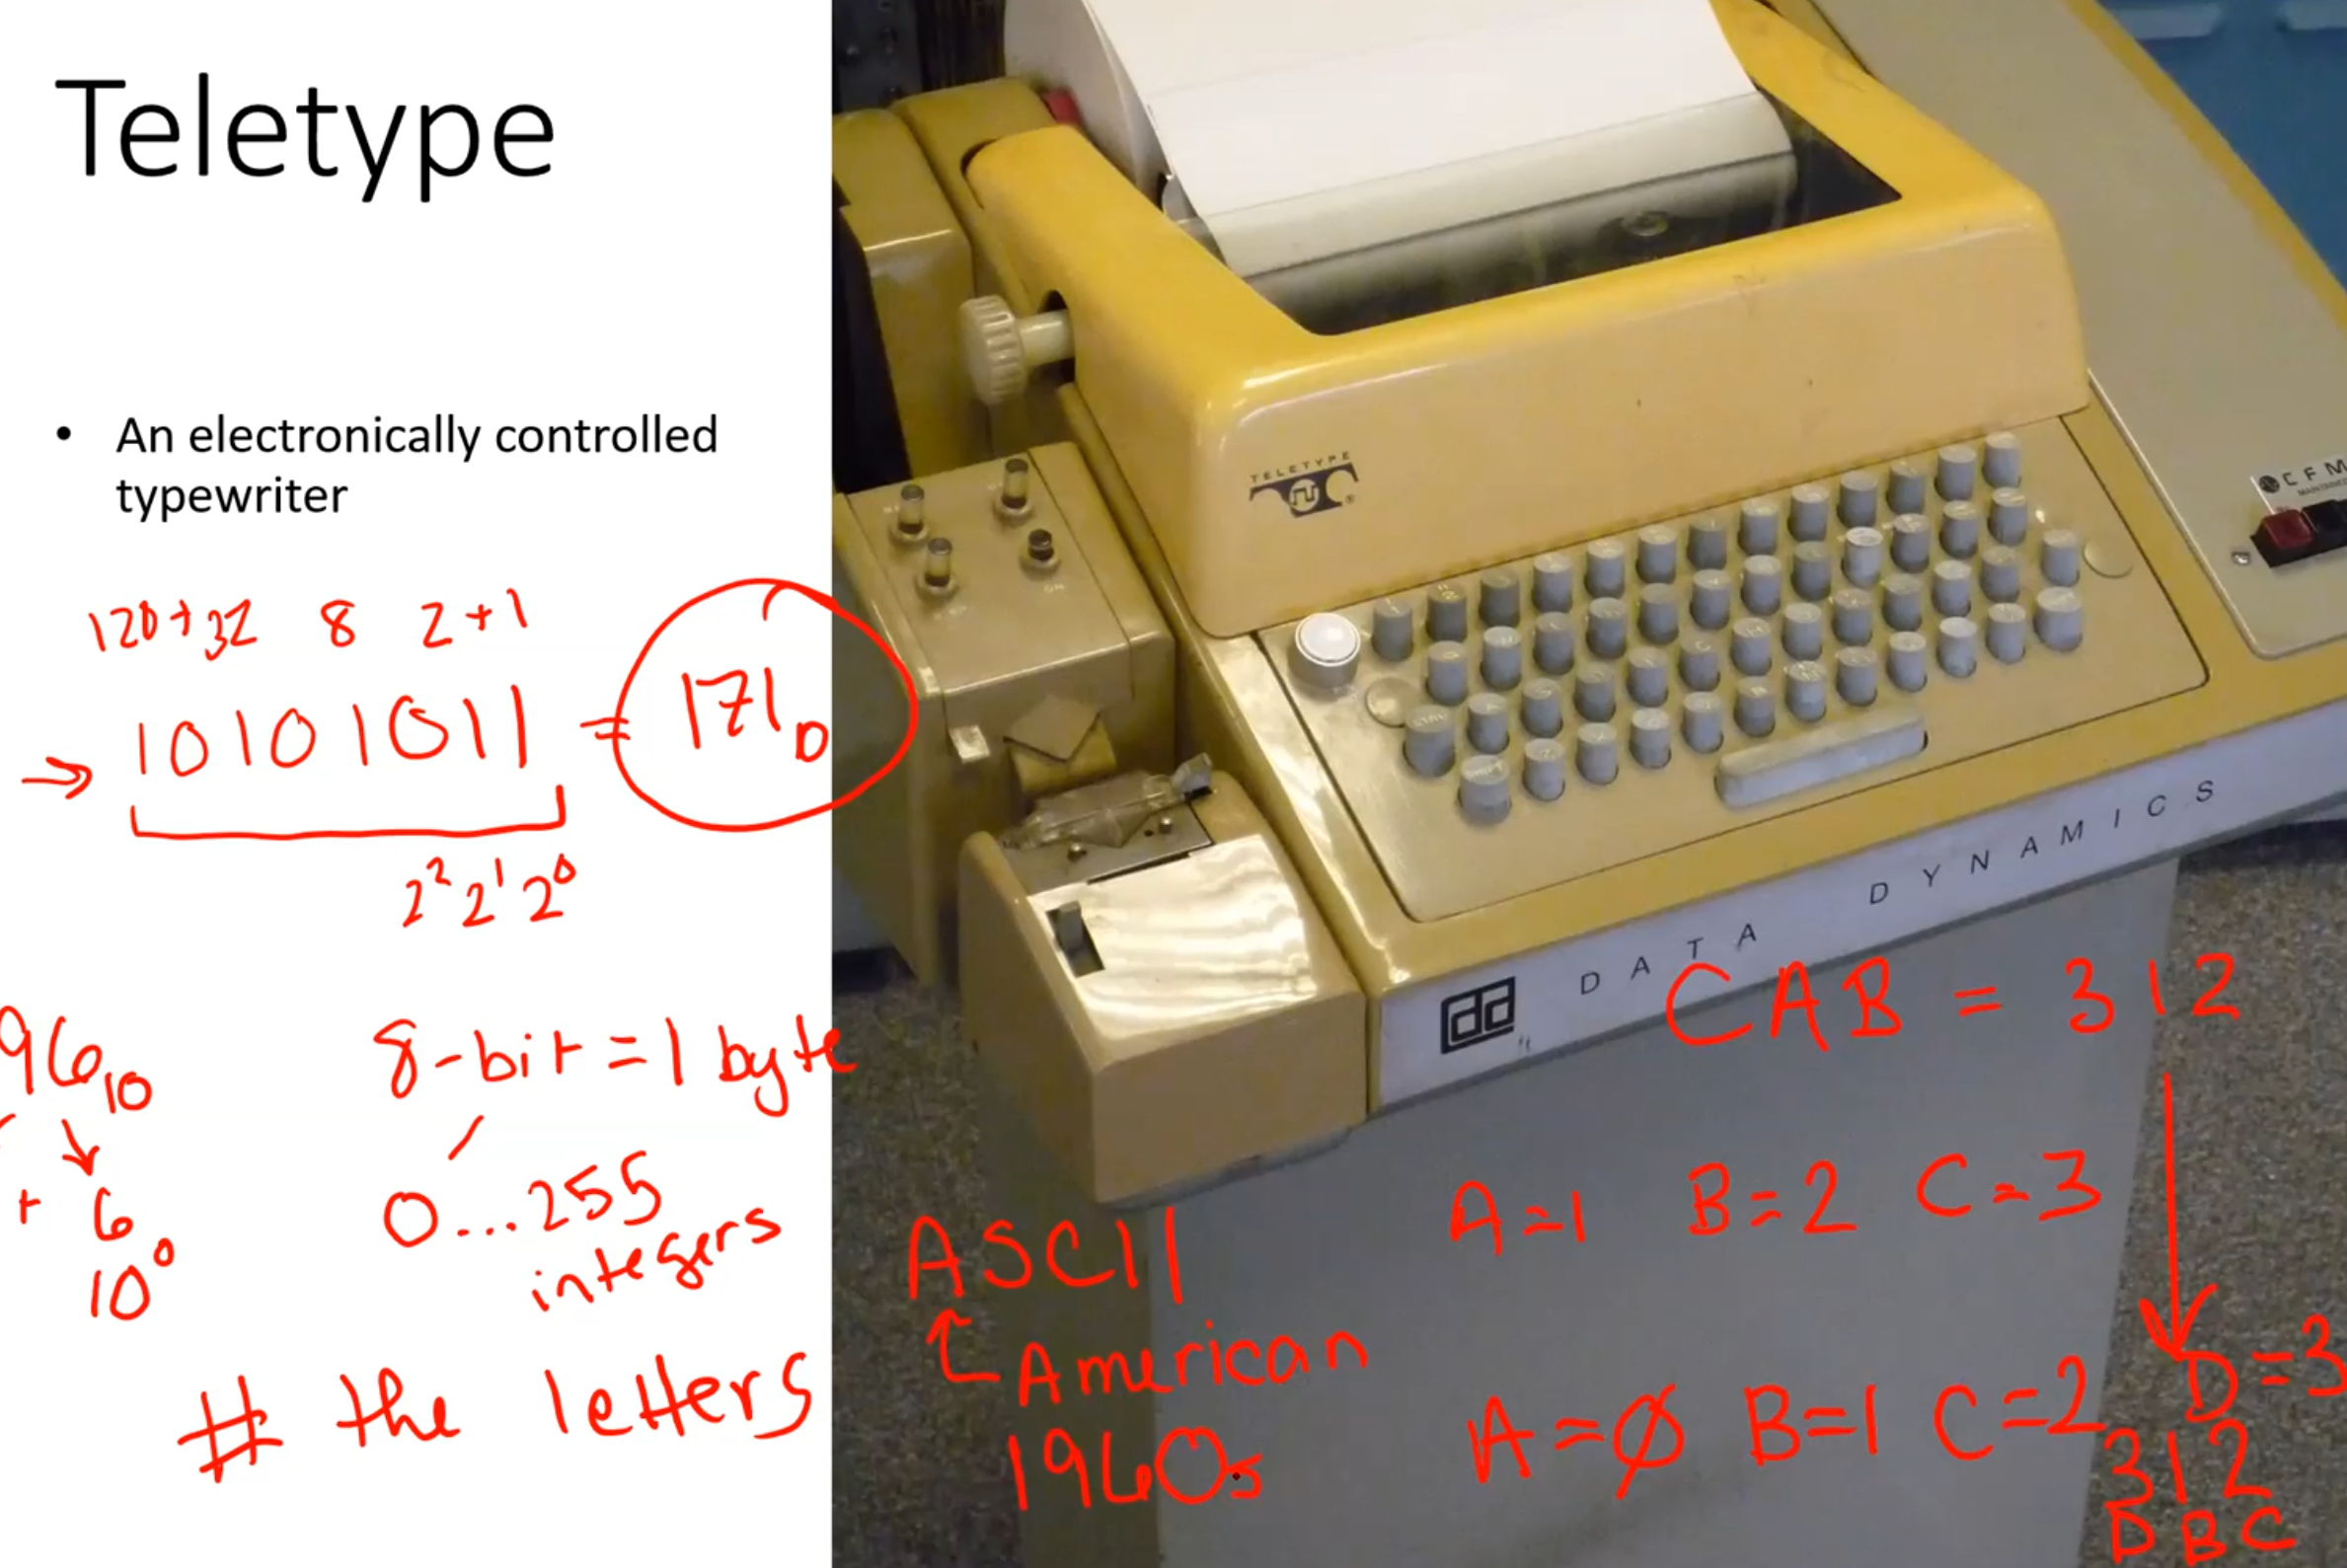 Teletype
• An electronically controlled
typewriter
120+32 8 2+1
10101011 = 171D
2² 2¹ 2⁰
96₁₀
+ 6
10⁰
8-bit = 1 byte
0...255
integers
# the letters
TELETYPE
DATA DYNAMICS
dd
CAB = 312
A=1 B=2 C=3
ASCII
American
1960s
A=Ø B=1 C=2 D=3
312
DBC
CFM